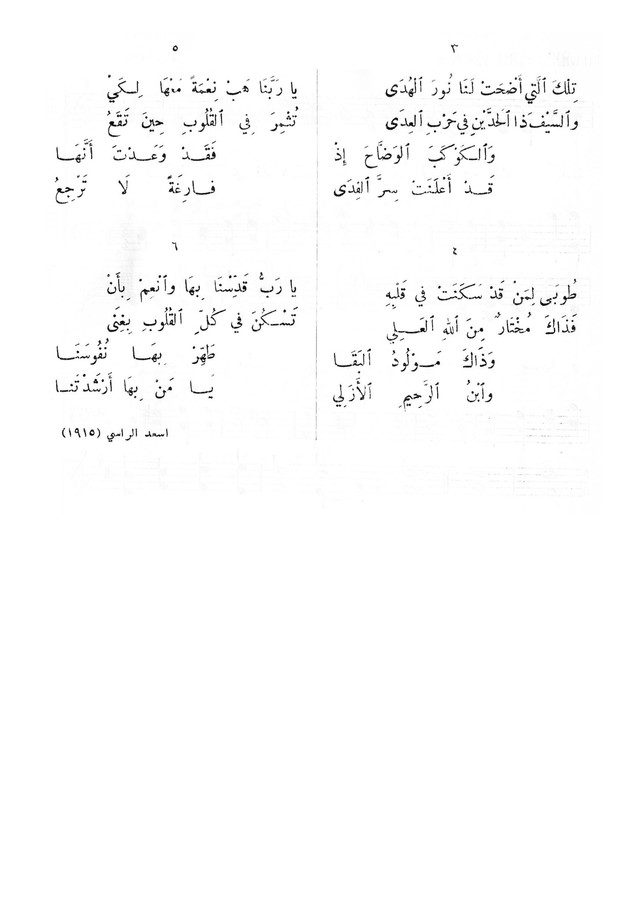 ٣
تِلْكَ ٱلَّتِي أَضْحَتْ لَنَا نُورَ ٱلْهُدَى
وٱلسَّيْفَ ذَا ٱلْحَدَّيْنِ فِي حَرْبِ ٱلْعِدَى
وَٱلْكَوْكَبَ ٱلوَضَّاحَ إِذْ
قَدْ أَعْلَنَتْ سِرَّ ٱلفِدَى
٤
طُوبَى لِمَنْ قَدْ سَكَنَتْ في قَلْبِهِ
فَذَاكَ مُخْتَارٌ مِنَ ٱللهِ ٱلْعَلِي
وَذَاكَ مَوْلُودُ ٱلبَقَا
وٱبْنُ ٱلرَّحِيمِ ٱلأَزَلِي
٥
يا رَبَّنَا هَبْ نِعْمَةً مَعْهَا لِكَيْ
تُثْمِرَ فِي ٱلقُلُوبِ حِينَ تَقَعُ
فَقَدْ وَعَدْتَ أَنَّهَا
فارِغَةً لَا تَرْجِعُ
٦
يا رَبُّ قَدِّسْنَا بِهَا وٱنْعِمْ بِأَنْ
تَسْكُنَ في كُلِّ ٱلقُلُوبِ بِغِنَى
طَهِّرْ بِهَا نُفُوسَنَا
يَا مَنْ بِهَا أَرْشَدْتَنا
اسعد الراسي (١٩١٥)